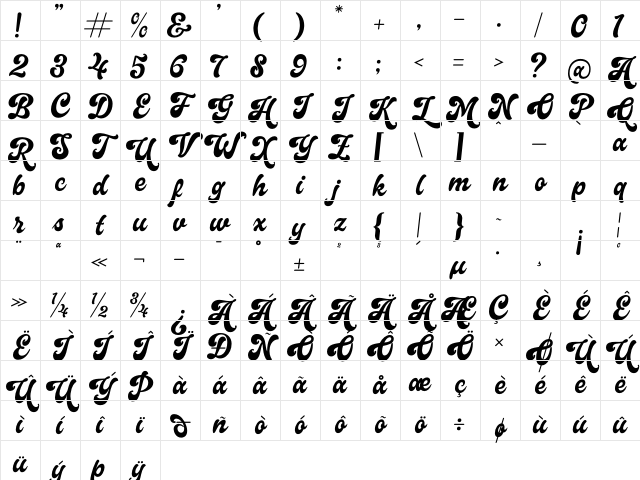 ! " # % & ' ( ) * + , − · / 0 1
2 3 4 5 6 7 8 9 : ; < = > ? @ A
B C D E F G H I J K L M N O P Q
R S T U V W X Y Z [ \ ] ^ — ` a
b c d e f g h i j k l m n o p q
r s t u v w x y z { | } ~ ¡ ¦
¨ ª « ¬ − ¯ ° ± ² ³ ´ µ · ¸
» ¼ ½ ¾ ¿ À Á Â Ã Ä Å Æ Ç È É Ê
Ë Ì Í Î Ï Ð Ñ Ò Ó Ô Õ Ö × Ø Ù Ú
Û Ü Ý Þ à á â ã ä å æ ç è é ê ë
ì í î ï ð ñ ò ó ô õ ö ÷ ø ù ú û
ü ý þ ÿ